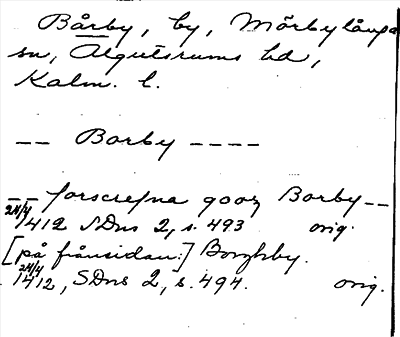 Bårby, by, Mörbylånga
sn, Algutsrums hd,
Kalm. l.
-- Borby ----
-- forscrefna gooz Borby --
24/4 1412 SDns 2, s. 493 orig.
[på frånsidan:] Borghby.
24/4 1412, SDns 2, s. 494. orig.